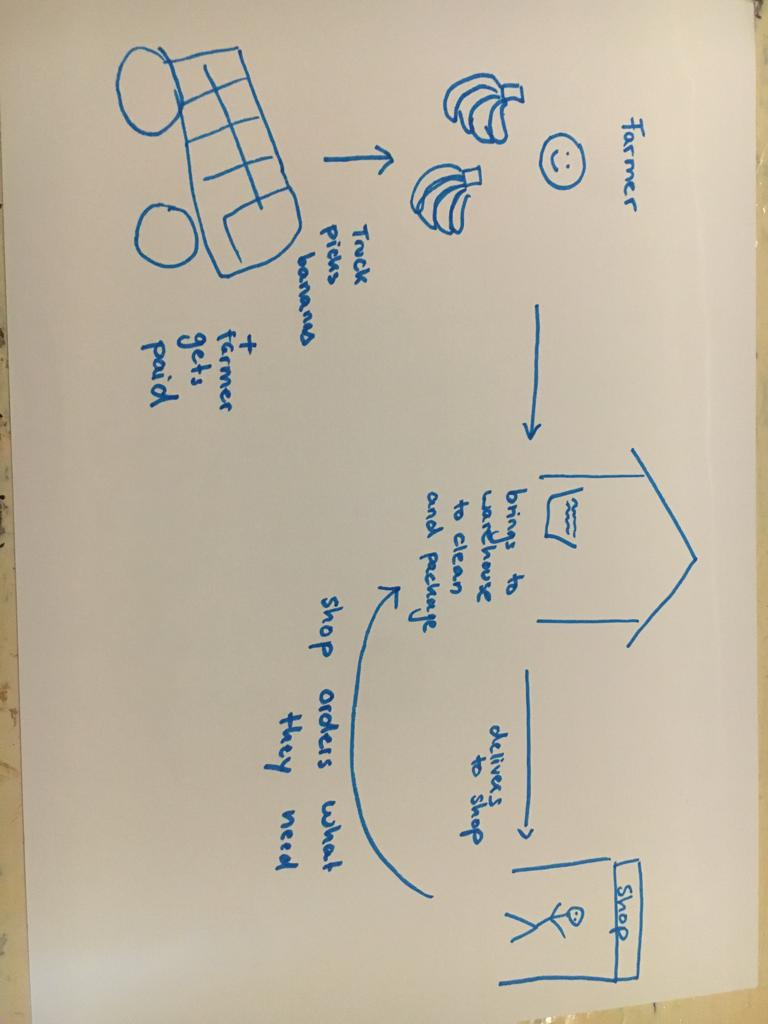 Farmer
Truck
picks
bananas
+
farmer
gets
paid
brings to
warehouse
to clean
and package
delivers
to shop
Shop
shop orders what
they need